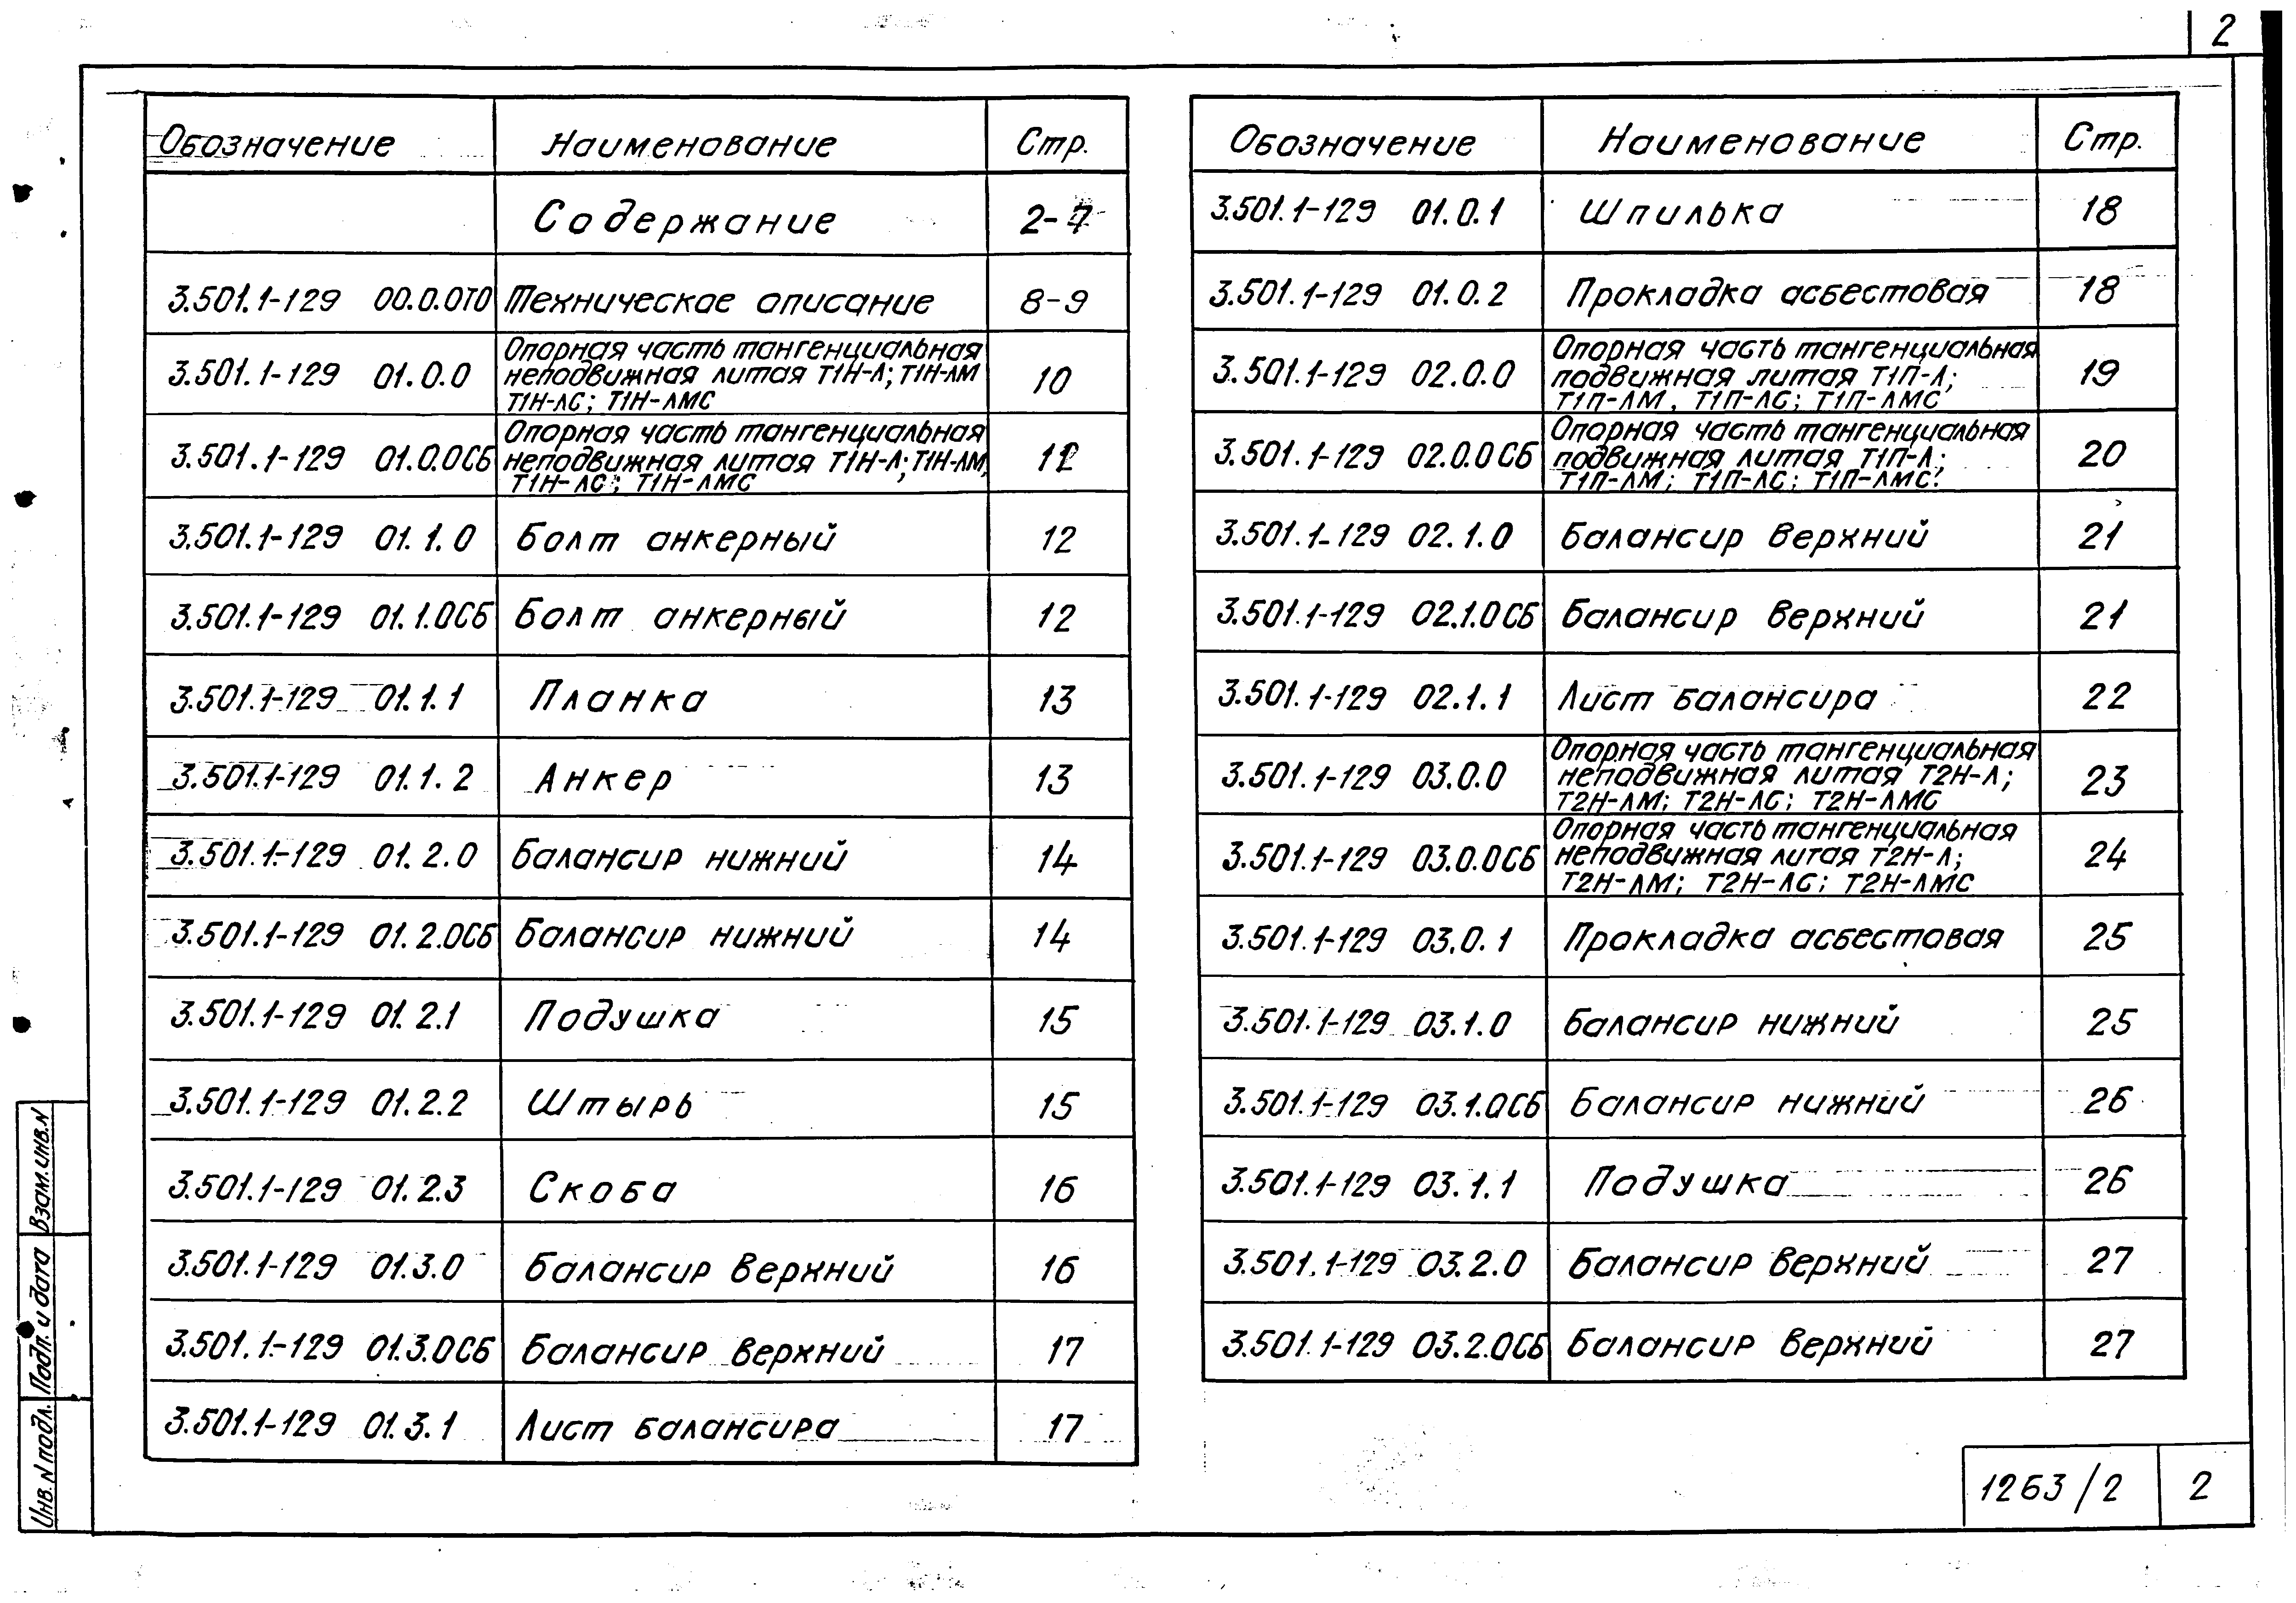 2
Обозначение Наименование Стр.
Содержание 2-7
3.501.1-129 00.0.0ТО Техническое описание 8-9
3.501.1-129 01.0.0 Опорная часть тангенциальная
неподвижная литая Т1Н-Л; Т1Н-ЛМ
Т1Н-ЛС; Т1Н-ЛМС 10
3.501.1-129 01.0.0СБ Опорная часть тангенциальная
неподвижная литая Т1Н-Л; Т1Н-ЛМ,
Т1Н-ЛС; Т1Н-ЛМС
3.501.1-129 01.1.0 Болт анкерный 12
3.501.1-129 01.1.0СБ Болт анкерный 12
3.501.1-129 01.1.1 Планка 13
3.501.1-129 01.1.2 Анкер 13
3.501.1-129 01.2.0 Балансир нижний 14
3.501.1-129 01.2.0СБ Балансир нижний 14
3.501.1-129 01.2.1 Подушка 15
3.501.1-129 01.2.2 Штырь 15
3.501.1-129 01.2.3 Скоба 16
3.501.1-129 01.3.0 Балансир верхний 16
3.501.1-129 01.3.0СБ Балансир верхний 17
3.501.1-129 01.3.1 Лист балансира 17
Обозначение Наименование Стр.
3.501.1-129 01.0.1 Шпилька 18
3.501.1-129 01.0.2 Прокладка асбестовая 18
3.501.1-129 02.0.0 Опорная часть тангенциальная
подвижная литая Т1П-Л;
Т1П-ЛМ, Т1П-ЛС; Т1П-ЛМС 19
3.501.1-129 02.0.0СБ Опорная часть тангенциальная
подвижная литая Т1П-Л;
Т1П-ЛМ; Т1П-ЛС; Т1П-ЛМС. 20
3.501.1-129 02.1.0 Балансир верхний 21
3.501.1-129 02.1.0СБ Балансир верхний 21
3.501.1-129 02.1.1 Лист балансира 22
3.501.1-129 03.0.0 Опорная часть тангенциальная
неподвижная литая Т2Н-Л;
Т2Н-ЛМ; Т2Н-ЛС; Т2Н-ЛМС 23
3.501.1-129 03.0.0СБ Опорная часть тангенциальная
неподвижная литая Т2Н-Л;
Т2Н-ЛМ; Т2Н-ЛС; Т2Н-ЛМС 24
3.501.1-129 03.0.1 Прокладка асбестовая 25
3.501.1-129 03.1.0 Балансир нижний 25
3.501.1-129 03.1.0СБ Балансир нижний 26
3.501.1-129 03.1.1 Подушка 26
3.501.1-129 03.2.0 Балансир верхний 27
3.501.1-129 03.2.0СБ Балансир верхний 27
Взам.инв.N
Подп. и дата
Инв.N подл.
1263/2 2